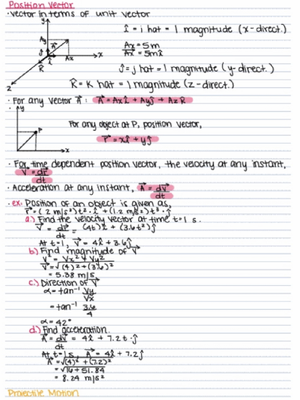 Position Vector
• Vector in terms of unit vector
î = i hat = 1 magnitude (x-direct.)
Ax = 5m
Ax = 5m î
ĵ = j hat = 1 magnitude (y-direct.)
k̂ = k hat = 1 magnitude (z-direct.)
• For any vector A⃗: A⃗ = Ax î + Ay ĵ + Az k̂
For any object at P, position vector,
r⃗ = x î + y ĵ
• For time dependent position vector, the velocity at any instant,
v⃗ = dr⃗/dt
• Acceleration at any instant, a⃗ = dv⃗/dt
• ex: Position of an object is given as,
r⃗ = (2 m/s²)t² · î + (1.2 m/s³)t³ · ĵ
a.) Find the velocity vector at time t=1 s.
v⃗ = dr⃗/dt = (4t) î + (3.6t²) ĵ
At t=1, v⃗ = 4î + 3.6ĵ
b.) Find magnitude of v⃗
v = √Vx² + Vy²
v = √(4)² + (3.6)²
= 5.38 m/s
c.) Direction of v⃗
α = tan⁻¹ Vy/Vx
= tan⁻¹ 3.6/4
α = 42°
d.) Find acceleration.
a⃗ = dv⃗/dt = 4î + 7.2t · ĵ
At t=1s, a⃗ = 4î + 7.2ĵ
a⃗ = √(4)² + (7.2)²
= √16 + 51.84
= 8.24 m/s²
Projectile Motion